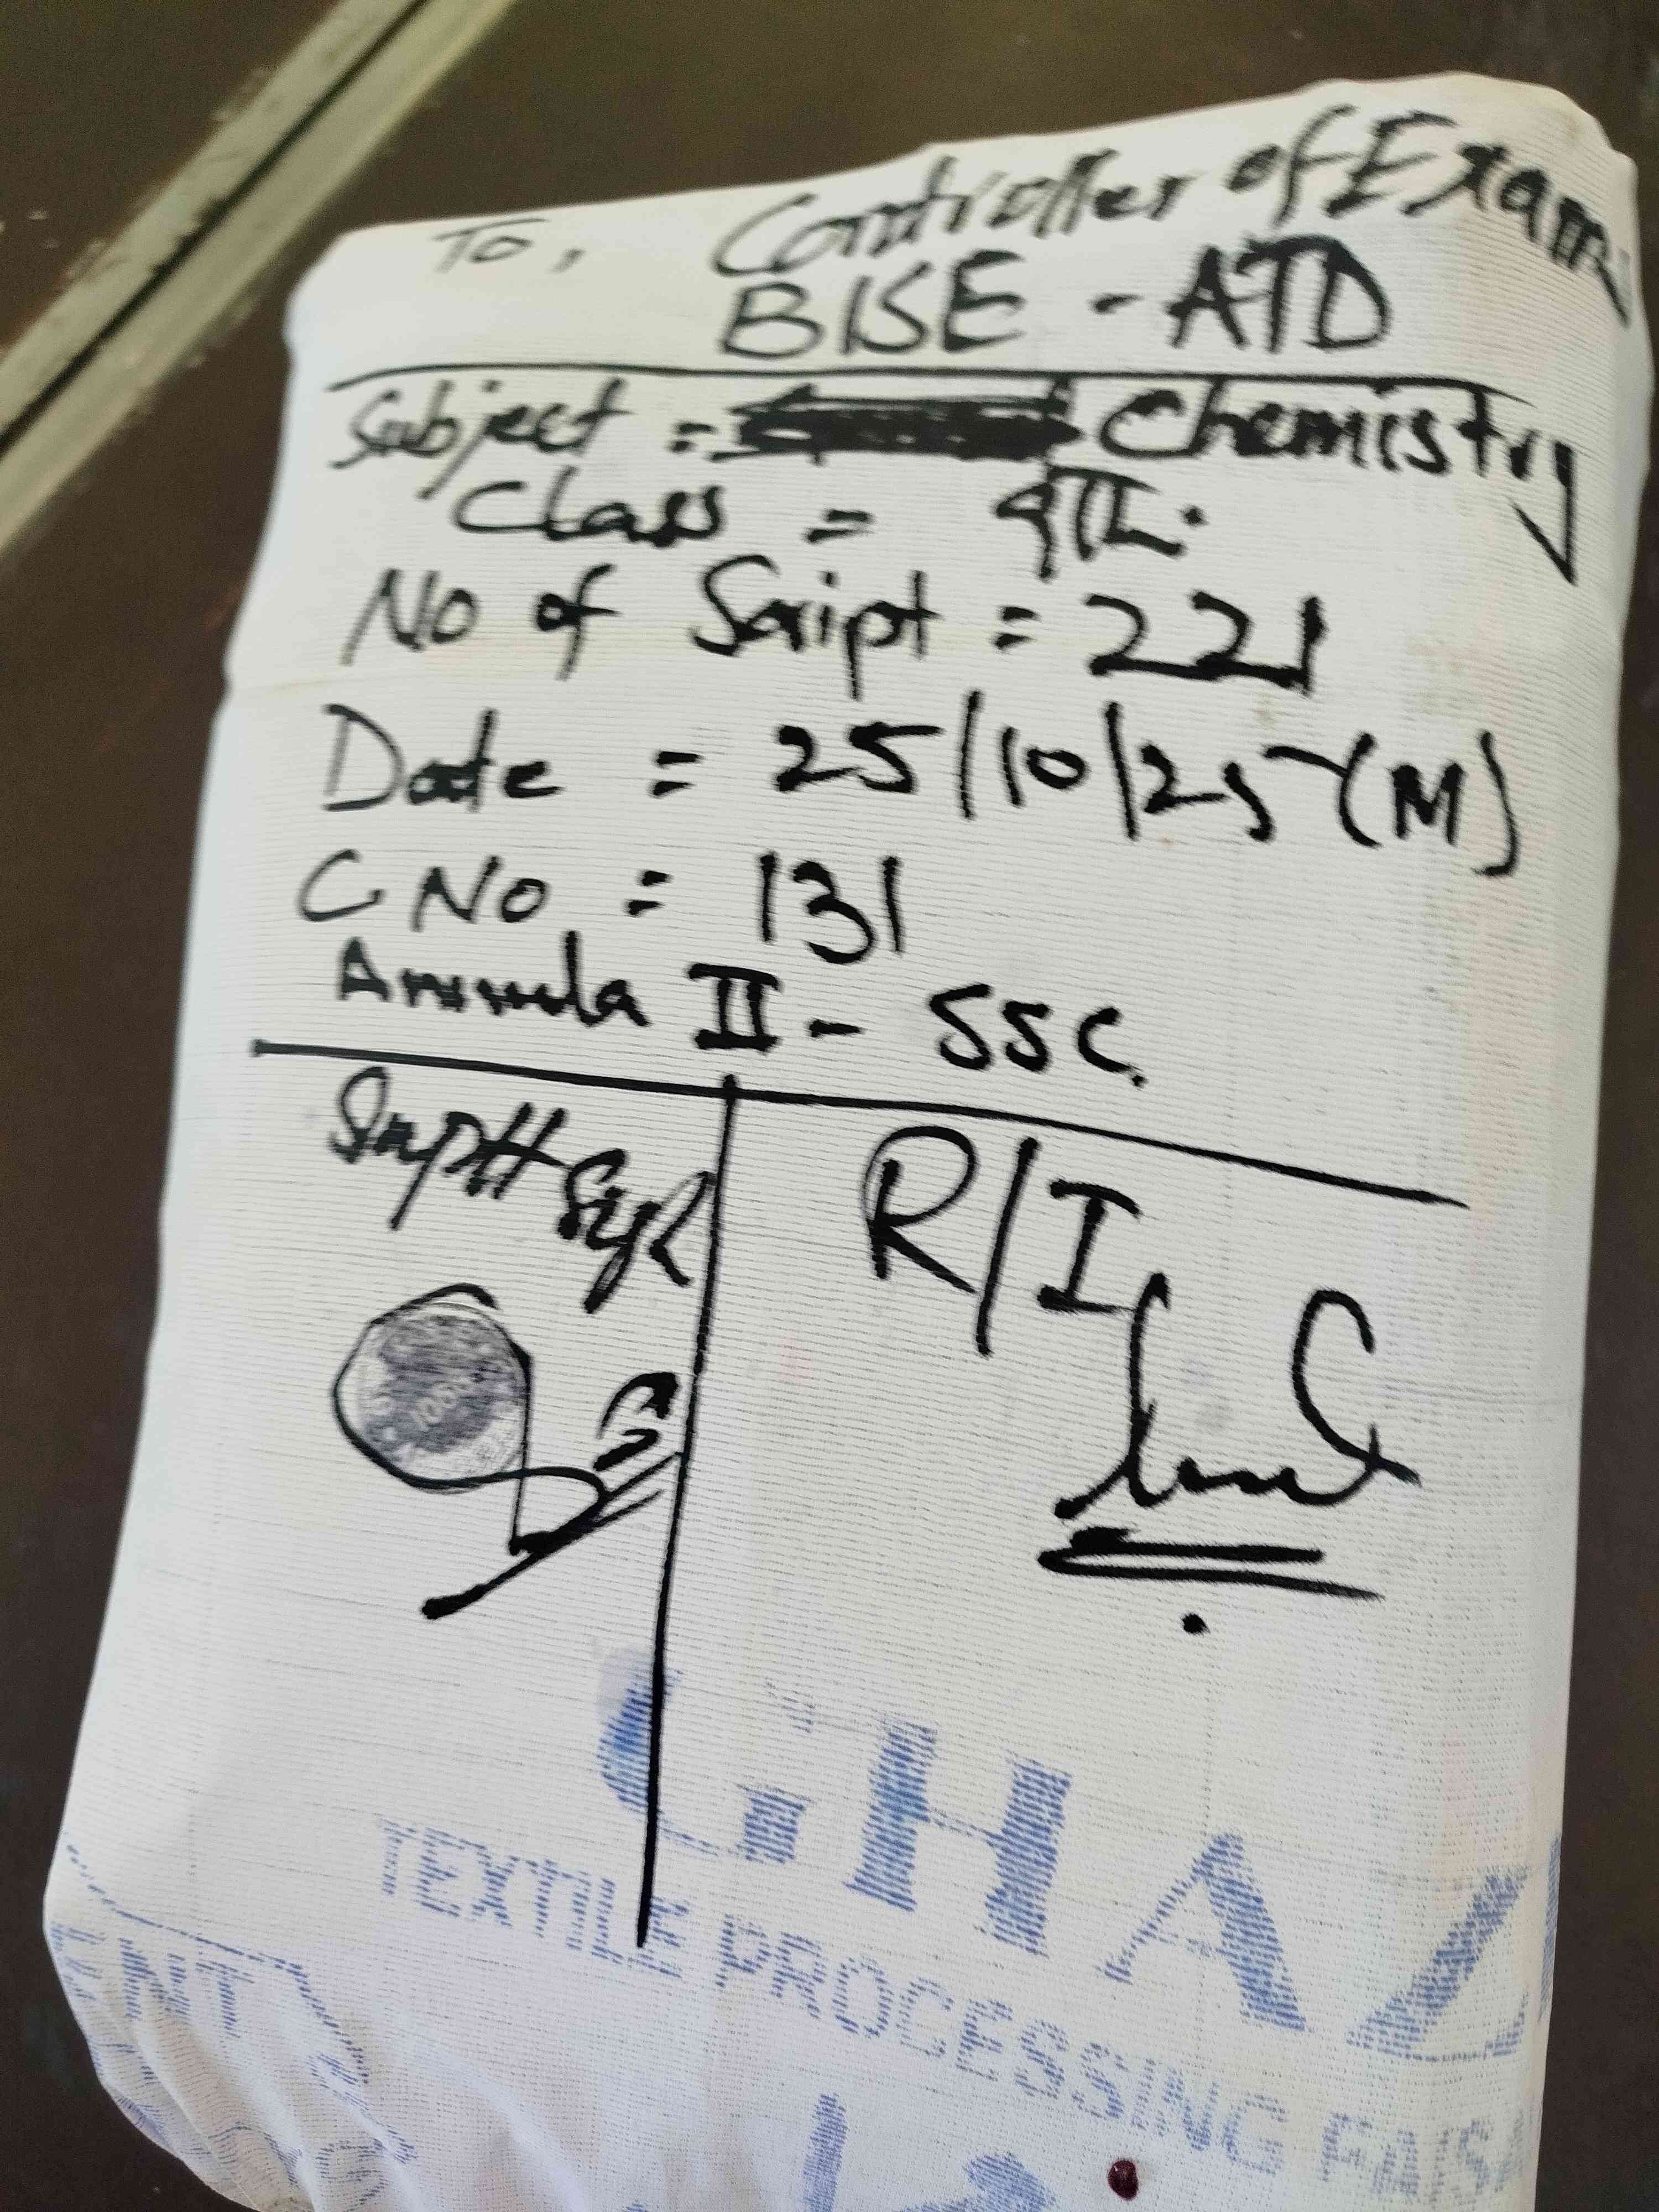 To, Controller of Exam
BISE - ATD
Subject = Chemistry
Class = 9th.
No of Script = 221
Date = 25/10/25 (M)
C No = 131
Annula II - SSC.
R/I
GHAZ
TEXTILE PROCESSING FAISA
ENT